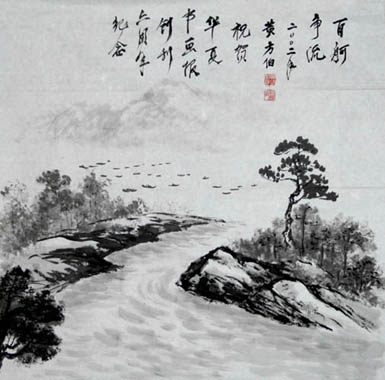 百舸
争流
二〇〇二年
黄方伯
祝贺
华夏
书画报
创刊
六周年
纪念